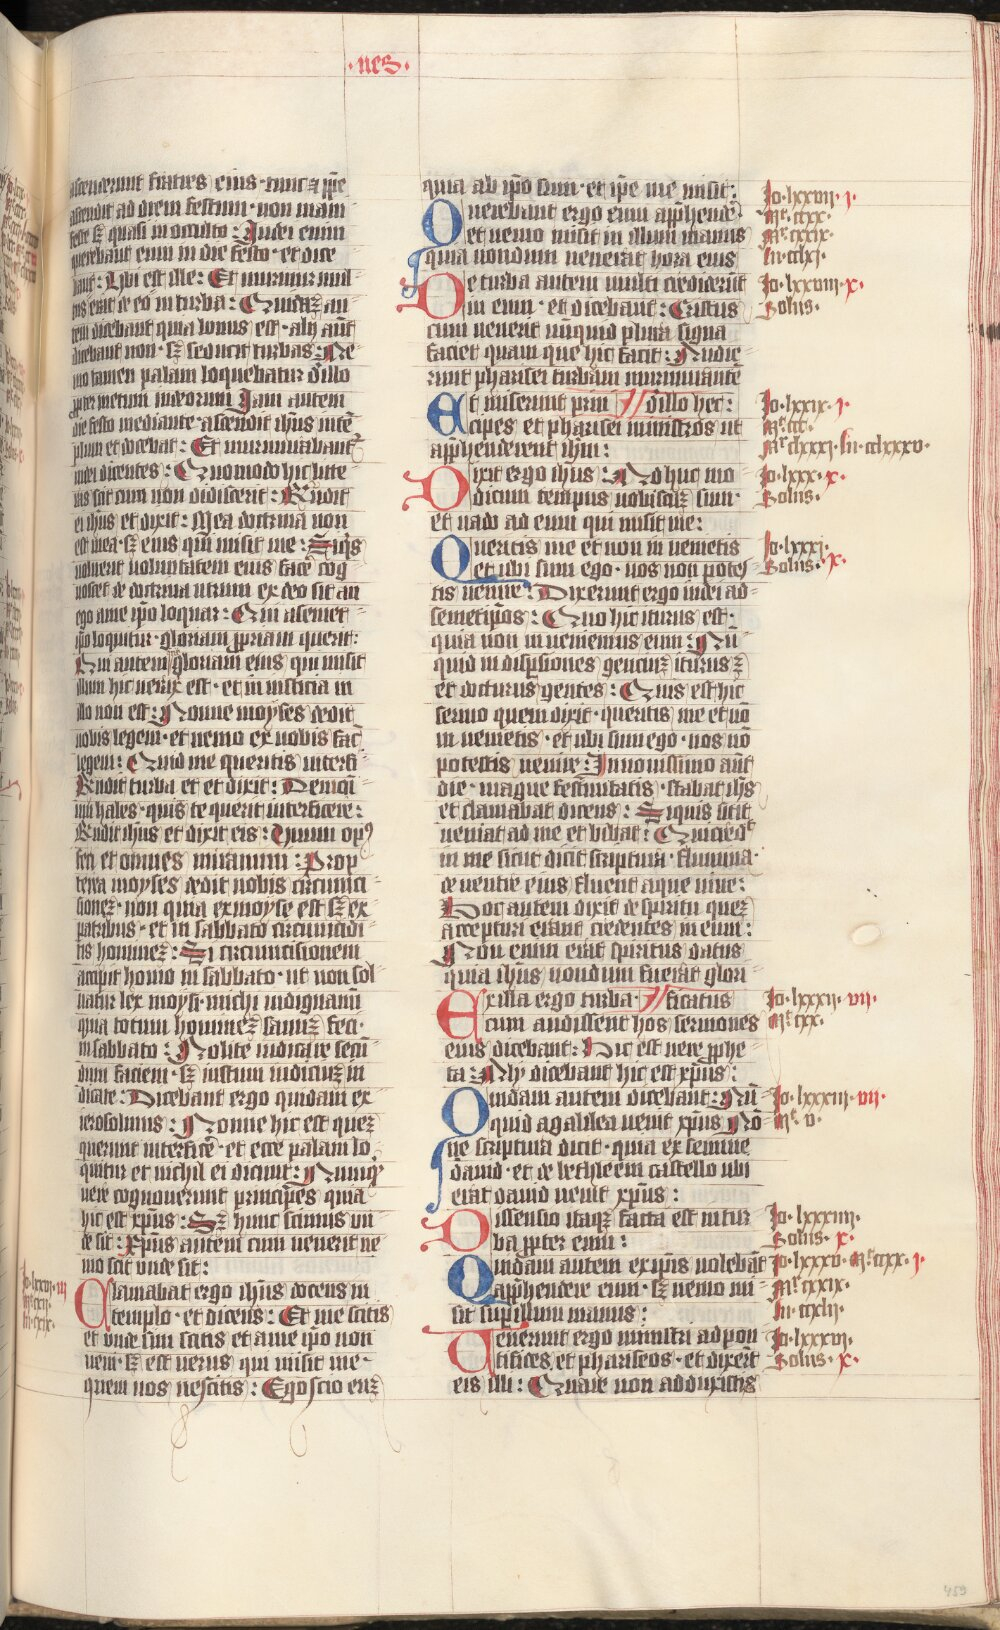 ·nes·
ascenderunt fratres eius · tunc et ip̄e
ascendit ad diem festum · non mani
feste sꝫ quasi in occulto : Iudei enim
querebant eum in die festo · et dice
bant : Ubi est ille : Et murmur mul
tus erat de eo in turba : Quidaꝫ au
tem dicebant quia bonus est · alij aūt
dicebant non · sꝫ seducit turbas : Ne
mo tamen palam loquebatur d̄ illo
ꝓpter metum iudeorum Iam autem
die festo mediante · ascendit ihūs in tē
plum et docebat : Et mirabant̄
iudei dicentes : Quomodo hic litte
ras scit cum non didiscerit : Rn̄dit
ei ihūs et dixit : Mea doctrina non
est mea · sꝫ eius qui misit me : Siq̄s
uoluerit uoluntatem eius facē cog
noscet de doctrina utrum ex deo sit an
ego a me ip̄o loquar : Qui a semet
ip̄o loquitur · gloriam ꝓpriam querit :
Qui autem gloriam eius qui misit
illum hic uerax est · et in iusticia in
illo non est : Nonne moyses dedit
uobis legem · et nemo ex uobis fac̄
legem : Quid me queritis interfi
Rn̄dit turba et et dixit : Demoni
um habes · quis te querit interficere :
Rn̄dit ihūs et dixit eis : Unum opꝰ
feci et omnes miramini : Prop
terea moyses dedit uobis circumci
sioneꝫ · non quia ex moyse est sꝫ ex
patribus · et in sabbato circumcidi
tis homineꝫ : Si circumcisionem
accipit homo in sabbato · ut non sol
uatur lex moysi · michi indignamī
quia totum homineꝫ sanuꝫ feci ·
in sabbato : Nolite iudicare secū
dum faciem · sꝫ iustum iudiciuꝫ iu
dicate : Dicebant ergo quidam ex
ierosolimis : Nonne hic est queꝫ
querunt interficē · et ecce palam lo
quitur et nichil ei dicunt : Nunq̄
uere cognouerunt principes quia
hic est xp̄us : Sꝫ hunc scimus un
de sit : Xp̄us autem cum uenerit ne
mo scit unde sit :
Io · lxxvij · iij
Clamabat ergo ihūs docens in
templo · et dicens : Et me scitis
et unde sim scitis et a me ip̄o non
ueni · sꝫ est uerus qui misit me ·
quem uos nescitis : Ego scio euꝫ
quia ab ip̄o sum · et ip̄e me misit :
Querebant ergo eum app̄hendē
et nemo misit in illum manus
quia nondum uenerat hora eius
De turba autem multi crediderūt
in eum · et dicebant : Cristus
cum uenerit nūquid plura signa
faciet quam que hic facit : Audie
runt pharisei turbam murmurantē
Et miserunt prin // d̄ illo hec :
cipes et pharisei ministros ut
app̄henderent ihm̄ :
Dixit ergo ihūs : Adhuc mo
dicum tempus uobiscuꝫ sum ·
et uado ad eum qui misit me :
Queritis me et non in uenietis
et ubi sum ego · uos non potes
tis uenire : Dixerunt ergo iudei ad
semetip̄os : Quo hic iturus est ·
quia non in ueniemus eum : Nū
quid in disp̄siones genciuꝫ iturus ꝫ
et docturus gentes : Quis est hic
sermo quem dixit · queritis me et nō
in uenietis · et ubi sum ego · uos nō
potestis uenire : In nouissimo aūt
die · magne festiuitatis · stabat ihs̄
et clamabat dicens : Siquis sitit
ueniat ad me et bibat : Qui credᵗ
in me sicut dicit scriptura · flumina ·
de uentre eius fluent aque uiue :
Hoc autem dixit de spiritu queꝫ
accepturi erant credentes in eum :
Non enim erat spiritus datus
quia ihūs nondum fuerat glori
Ex illa ergo turba · // ficatus
cum audissent hos sermones
eius dicebant : Hic est uere ꝓphe
ta : Alij dicebant hic est xp̄us :
Quidam autem dicebant : Nū
quid a galilea uenit xp̄us Nō
ne scriptura dicit · quia ex semine
dauid · et de bethleem castello ubi
erat dauid uenit xp̄us :
Dissensio itaqꝫ facta est in tur
ba ꝓpter eum :
Quidam autem ex ip̄is uolebāt
app̄hendere eum · sꝫ nemo mi
sit sup̄ illum manus :
Uenerunt ergo ministri ad pon
tifices et phariseos · et dixerūt
eis illi : Quare non adduxistis
Io · lxxviij · j ·
Mᵗ · ccxx ·
Mʳ · cxxix ·
Lu · cclxj ·
Io · lxxviiij · x ·
Solus ·
Io · lxxix · j ·
Io · lxxx · x ·
Solus ·
Io · lxxxj ·
Solus · x ·
Io · lxxxij · vij ·
Mᵗ · cxx ·
Io · lxxxiij · vij ·
Mᵗ · v ·
Io · lxxxiiij ·
Solus · x ·
Io · lxxxv · Mᵗ cxx · j ·
Mʳ · cxxix ·
Io · lxxxvj ·
Solus · x ·
459